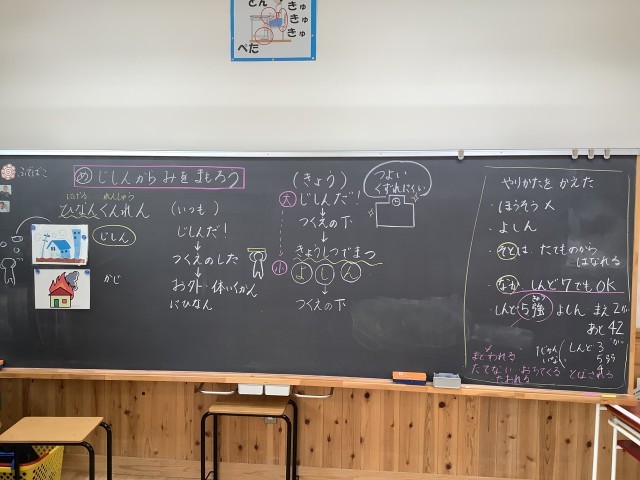 どん
きゅ
きゅ
きゅ
ぺた
ふでばこ
め じしんからみをまもろう
にげる れんしゅう
ひなんくんれん
じしん
かじ
(いつも)
じしんだ!
つくえのした
お外・体いくかん
にひなん
(きょう)
大 じしんだ!
つくえの下
きょうしつでまつ
小 よしん
つくえの下
つよい
くずれにくい
やりかたを かえた
・ほうそう×
・よしん
・そとは、たてものから
はなれる
・なか しんど7でもOK
きょう
・しんど5強 よしん まえ2か
あと42か
まどわれる
たてない おちてくる
たおれる
とばされる
じかん
いない
しんど3
5弱
4